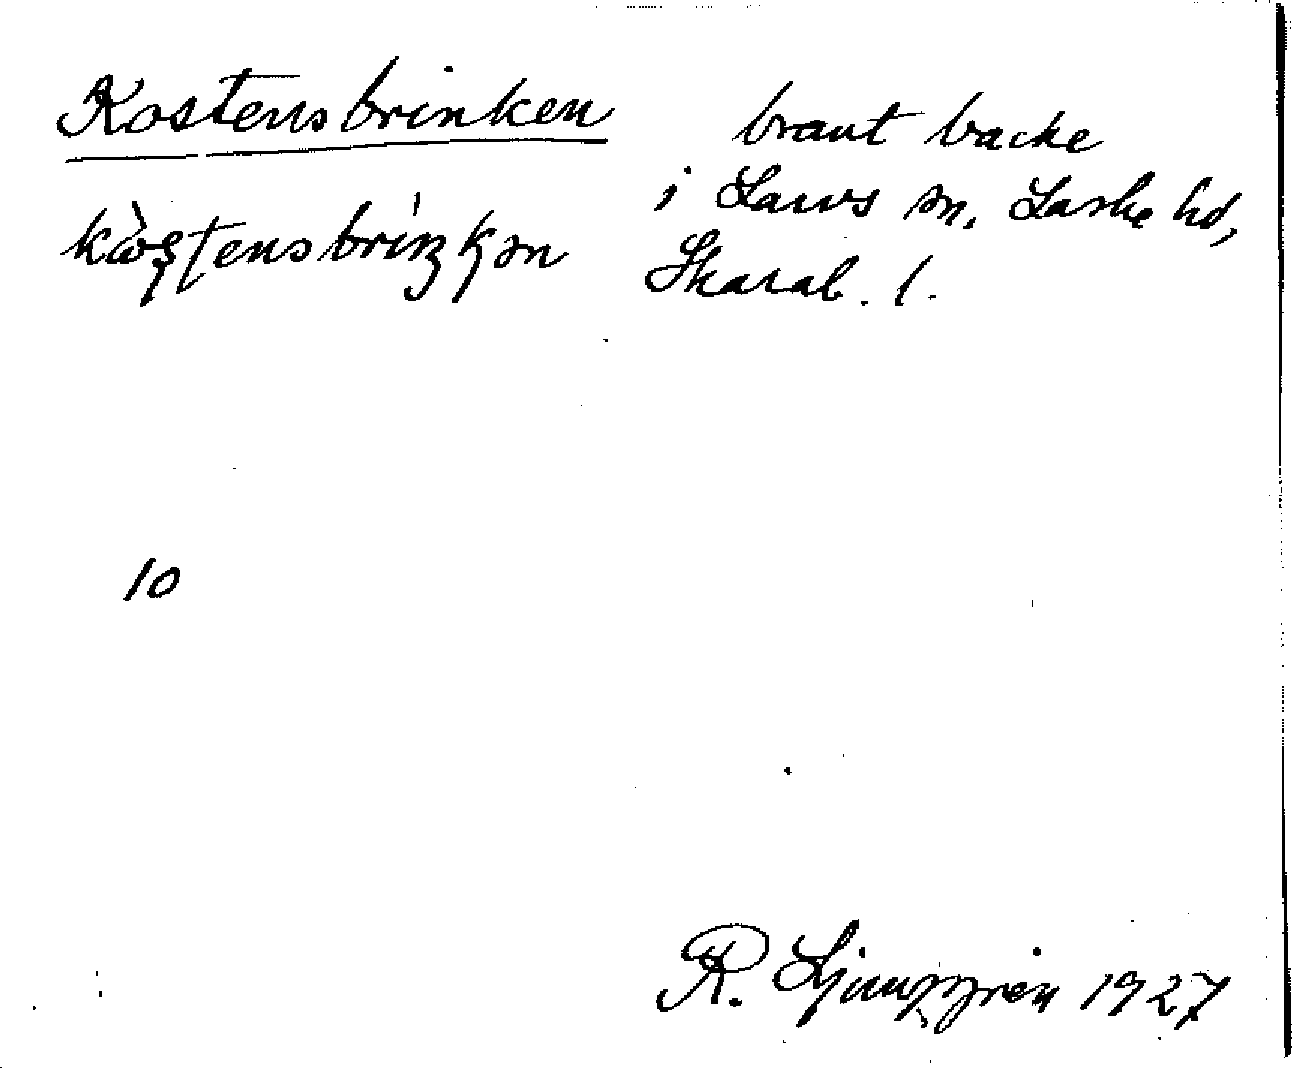 Kostensbrinken
brant backe
i Larvs sn, Laske hd,
Skarab. l.
10
R. Ljunggren 1927